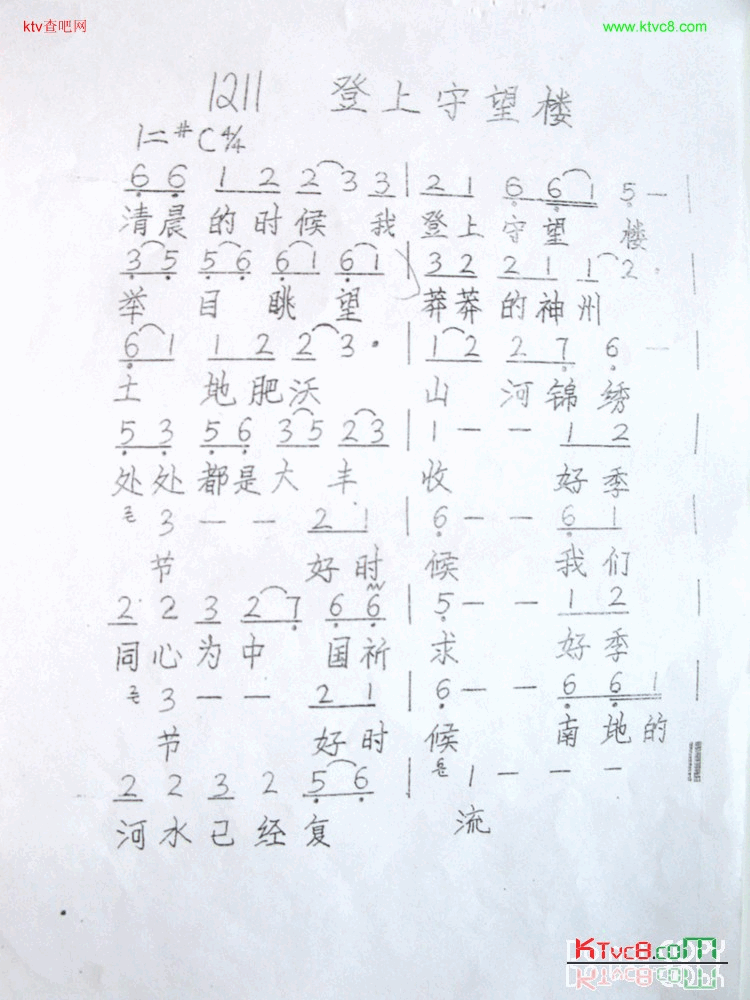 ktv查吧网
www.ktvc8.com
1211 登上守望楼
1=#C 4/4
6 6 1 2 2 3 3 | 2 1 6 6 1 5 — |
清晨的时候我登上守望楼
3 5 5 6 6 1 6 1 | 3 2 2 1 1 2 · |
举目眺望莽莽的神州
6 1 1 2 2 3 · | 1 2 2 7 6 — |
土地肥沃山河锦绣
5 3 5 6 3 5 2 3 | 1 — — 1 2 |
处处都是大丰收好季
3 — — 2 1 | 6 — — 6 1 |
节好时候我们
2 2 3 2 7 6 6 | 5 — — 1 2 |
同心为中国祈求好季
3 — — 2 1 | 6 — — 6 6 1 |
节好时候南地的
2 2 3 2 5 6 | 1 — — —
河水已经复流
KTvc8.com